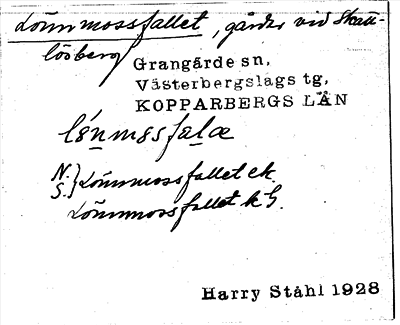 Lömmossfallet, gårdar vid Skatt-
lösberg
Grangärde sn,
Västerbergslags tg,
KOPPARBERGS LÄN
N.
S. } Lömmossfallet ek.
Lömmossfallet k G.
Harry Ståhl 1928